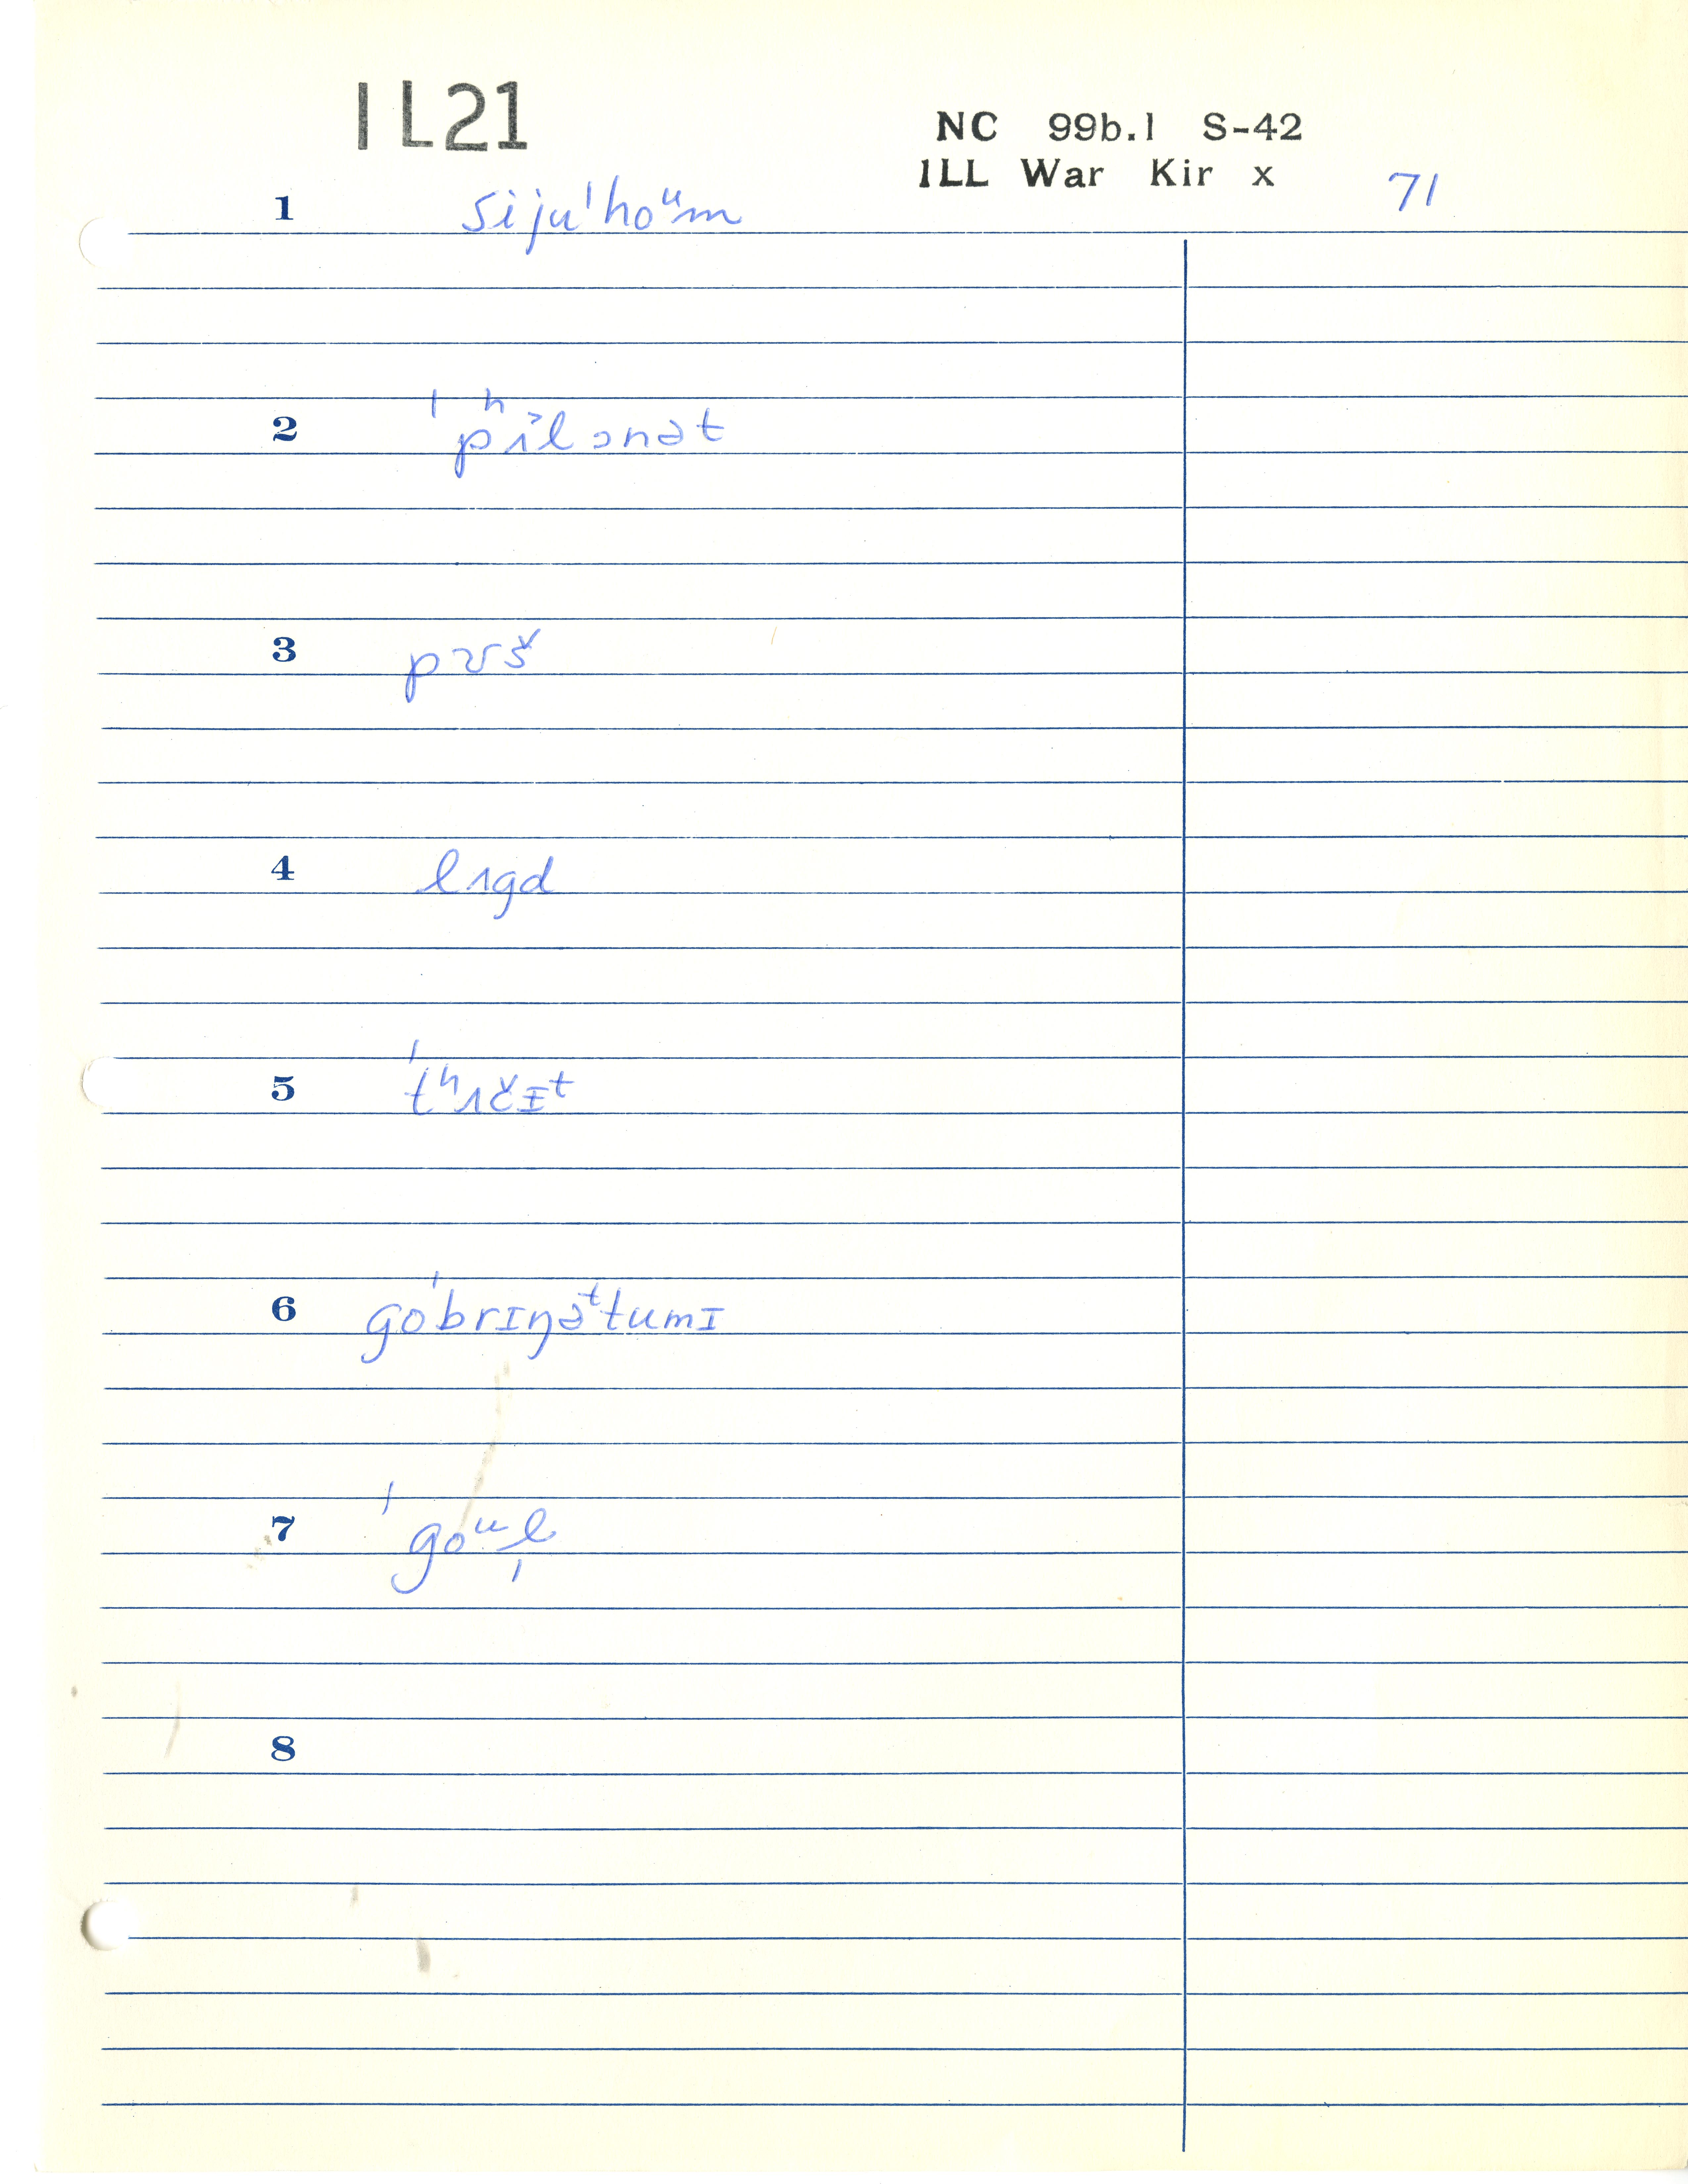 IL21
NC 99b.1 S-42
ILL War Kir x 71
1 siju'hoᵘm
2 ˈpʰɪ˃lənət
3 pʊš
4 lɪgd
5 ˈtʰɪčɪᵗ
6 goˈbrɪŋəᵗtumɪ
7 ˈgoᵘl̩
8